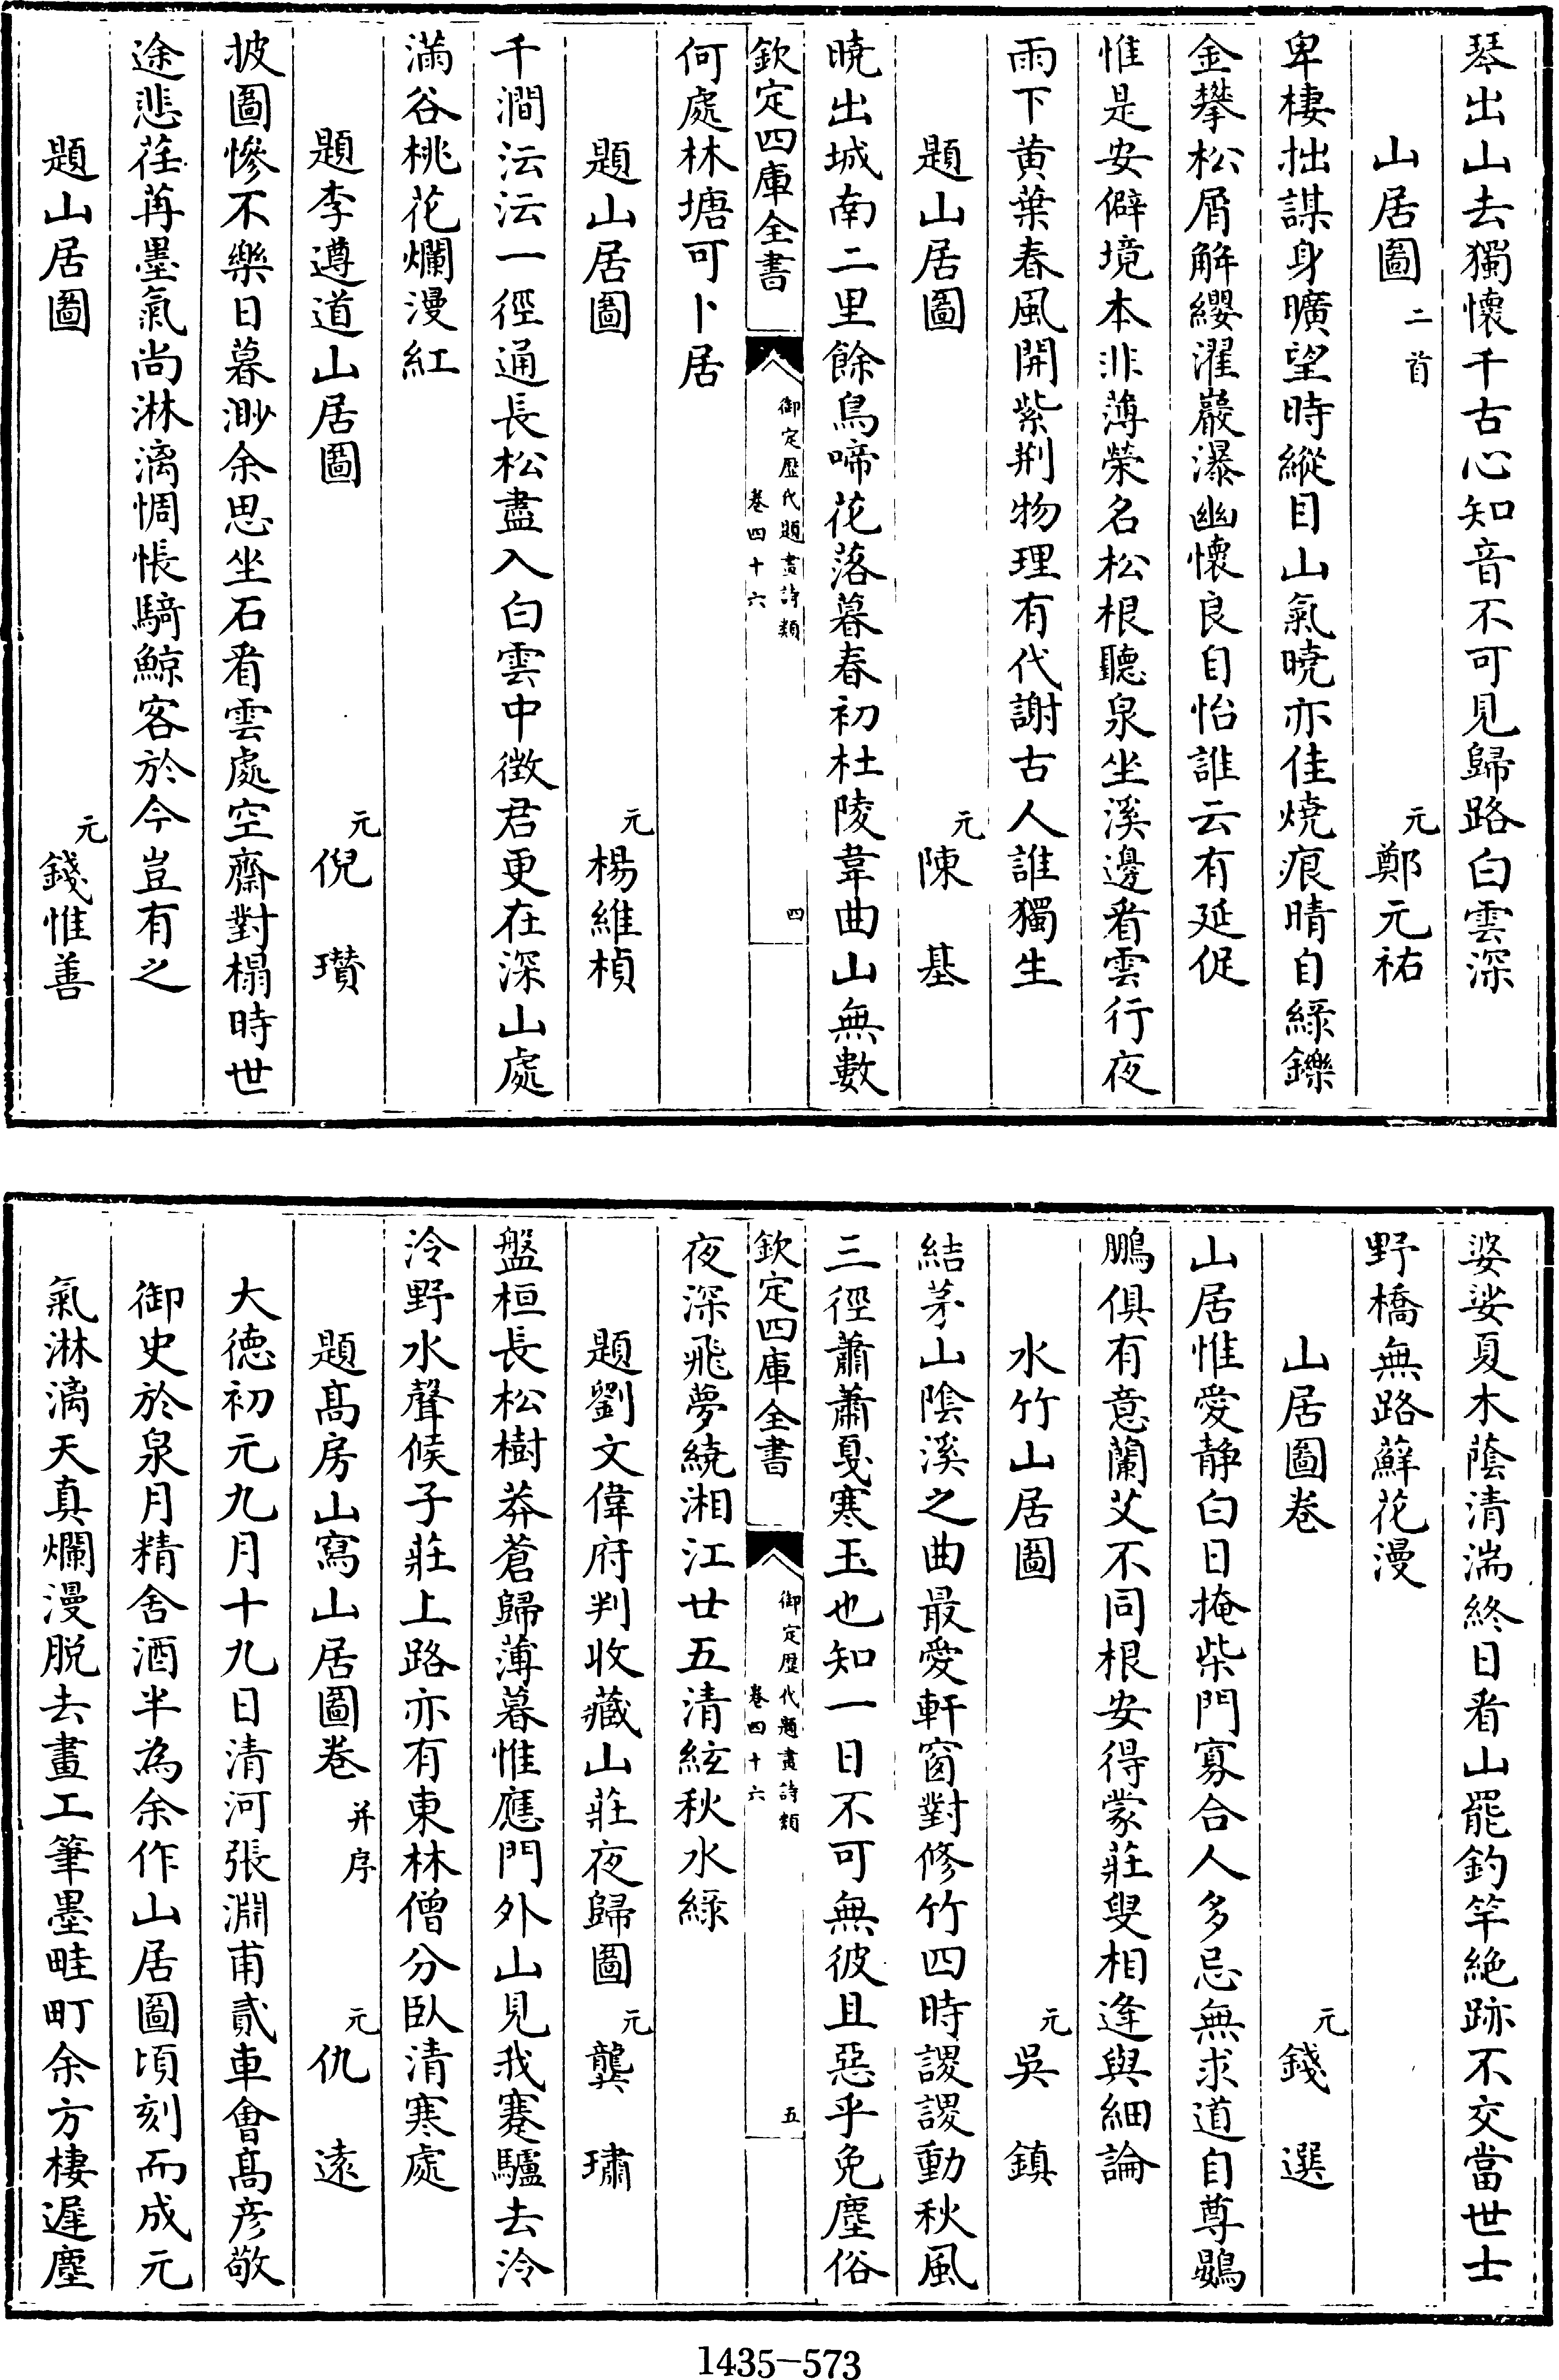 琴出山去獨懷千古心知音不可見歸路白雲深
山居圖 二首 元 鄭元祐
卑棲拙謀身曠望時縱目山氣曉亦佳燒痕晴自綠鑠
金攀松屑解纓濯巖瀑幽懷良自怡誰云有延促
惟是安僻境本非薄榮名松根聽泉坐溪邊看雲行夜
雨下黄葉春風開紫荆物理有代謝古人誰獨生
題山居圖 元 陳基
曉出城南二里餘鳥啼花落暮春初杜陵韋曲山無數
欽定四庫全書 御定歴代題畫詩類 卷四十六 四
何處林塘可卜居
題山居圖 元 楊維楨
千澗沄沄一徑通長松盡入白雲中徴君更在深山處
滿谷桃花爛漫紅
題李遵道山居圖 元 倪瓚
披圖慘不樂日暮渺余思坐石看雲處空齋對榻時世
途悲荏苒墨氣尚淋漓惆悵騎鯨客於今豈有之
題山居圖 元 錢惟善
婆娑夏木蔭清湍終日看山罷釣竿絶跡不交當世士
野橋無路蘚花漫
山居圖卷 元 錢選
山居惟愛静白日掩柴門寡合人多忌無求道自尊鷃
鵬俱有意蘭艾不同根安得蒙莊叟相逢與細論
水竹山居圖 元 吳鎮
結茅山陰溪之曲最愛軒窗對修竹四時謖謖動秋風
三徑蕭蕭戛寒玉也知一日不可無彼且惡乎免塵俗
欽定四庫全書 御定歴代題畫詩類 卷四十六 五
夜深飛夢繞湘江廿五清絃秋水綠
題劉文偉府判收藏山莊夜歸圖 元 龔璛
盤桓長松樹莽蒼歸薄暮惟應門外山見我蹇驢去泠
泠野水聲候子莊上路亦有東林僧分臥清寒處
題髙房山寫山居圖卷 并序 元 仇遠
大德初元九月十九日清河張淵甫貳車會髙彦敬
御史於泉月精舍酒半為余作山居圖頃刻而成元
氣淋漓天真爛漫脱去畫工筆墨畦町余方棲遲塵
1435-573